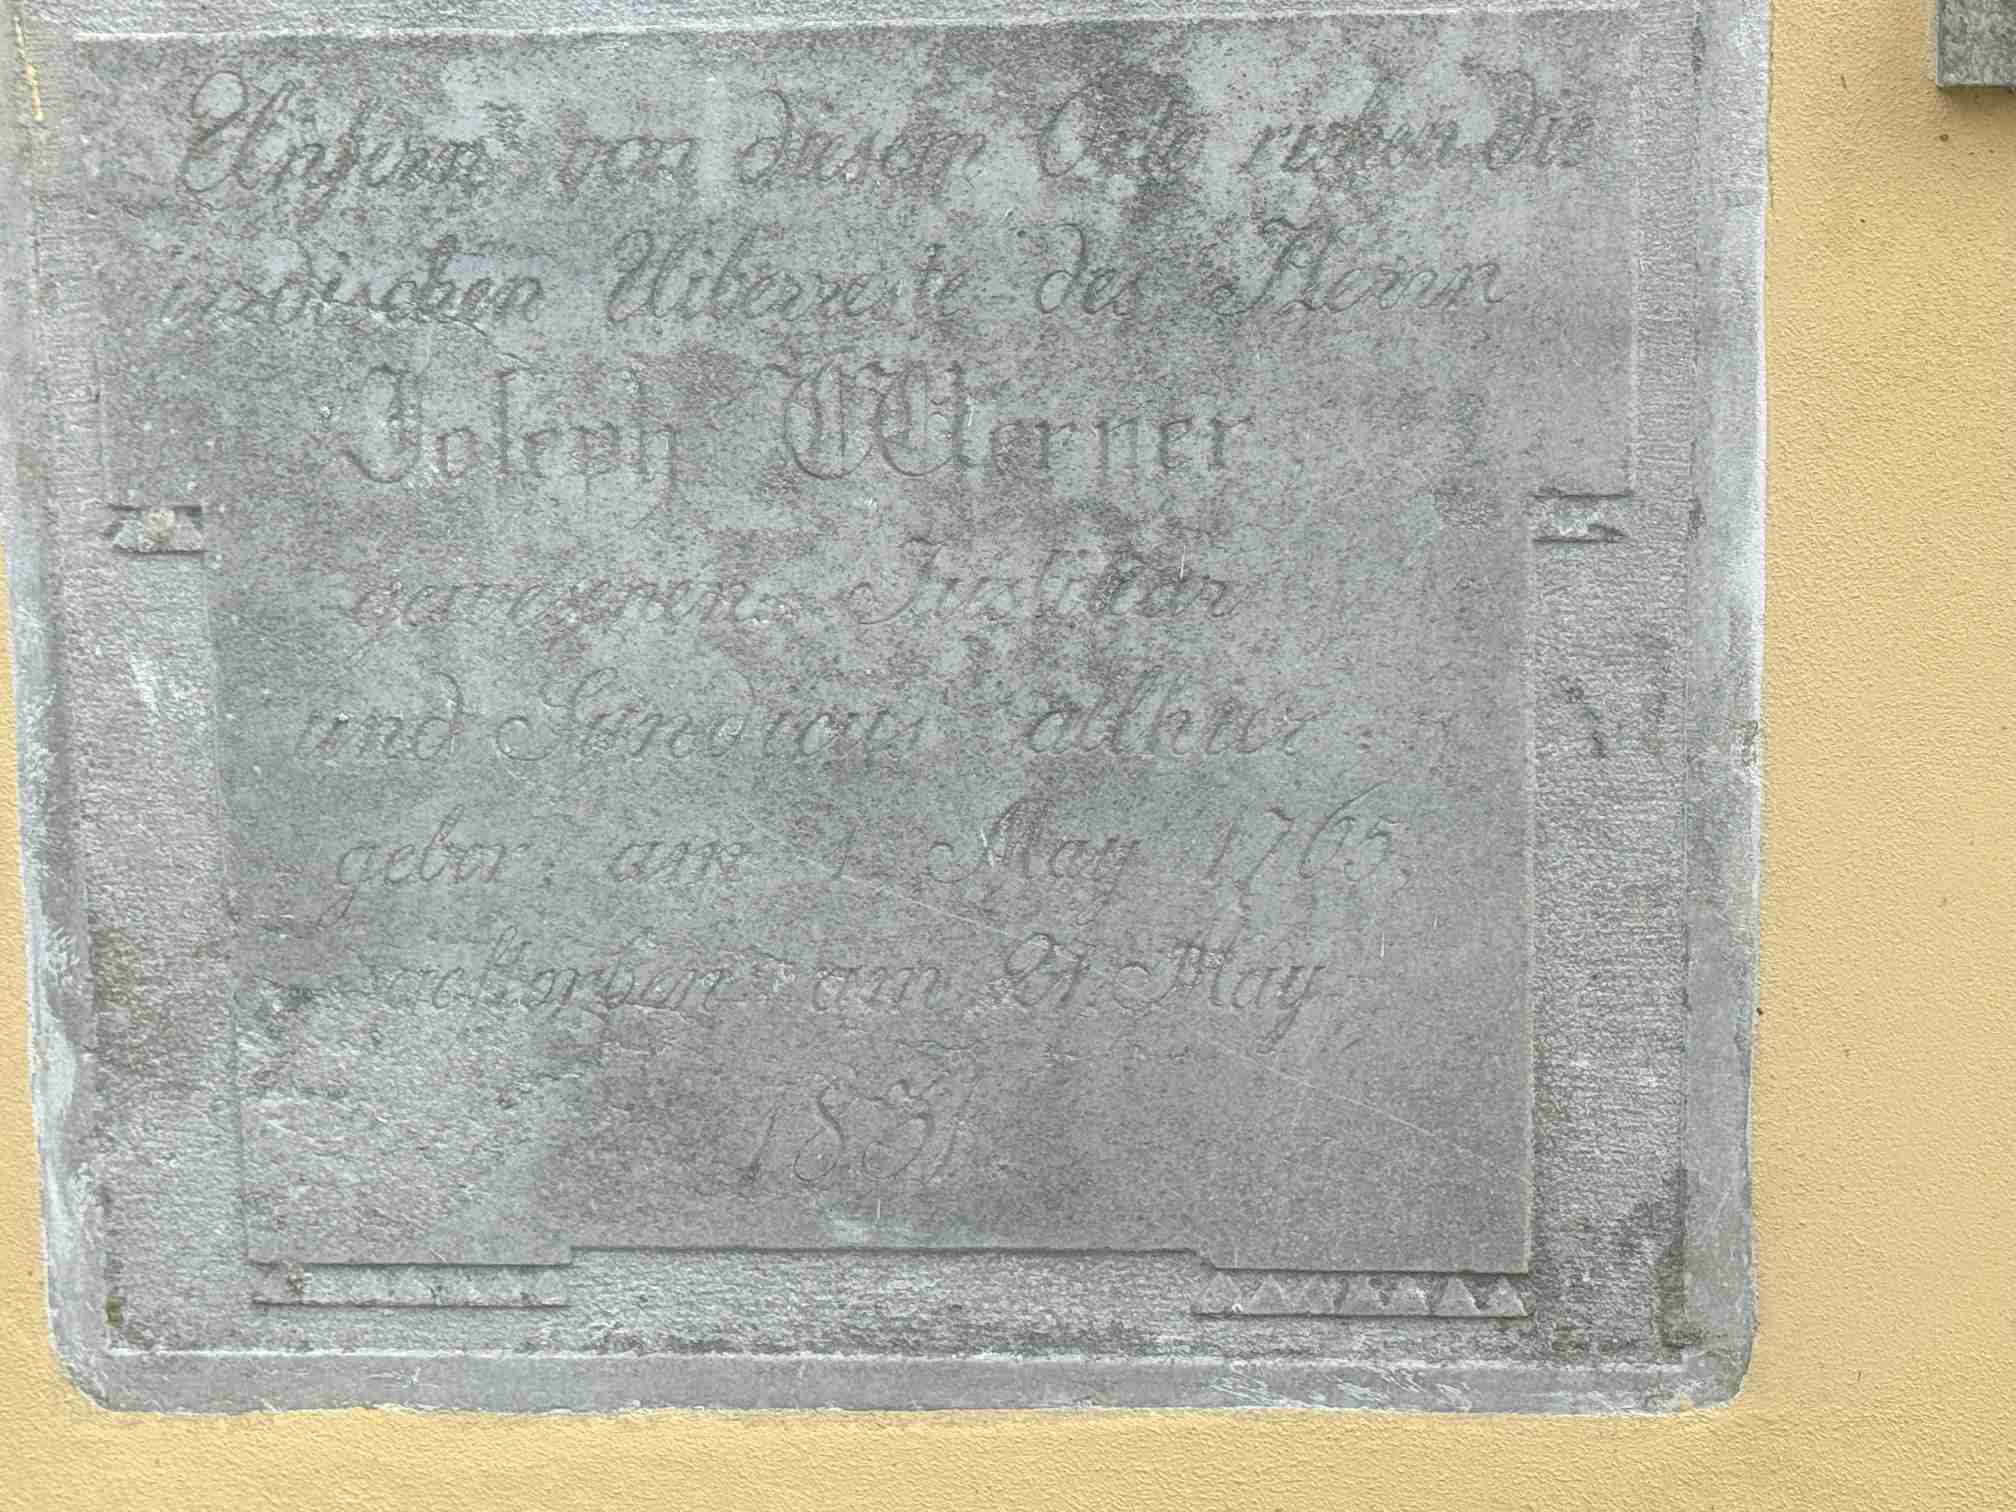 Unfern von diesen Orte ruhen die
irrdischen Uiberreste des Herrn
Joseph Werner
gewesenen Justitiär
und Sÿndicus allhier.
gebor: am 1. May 1765,
gestorben am 21. May
1831